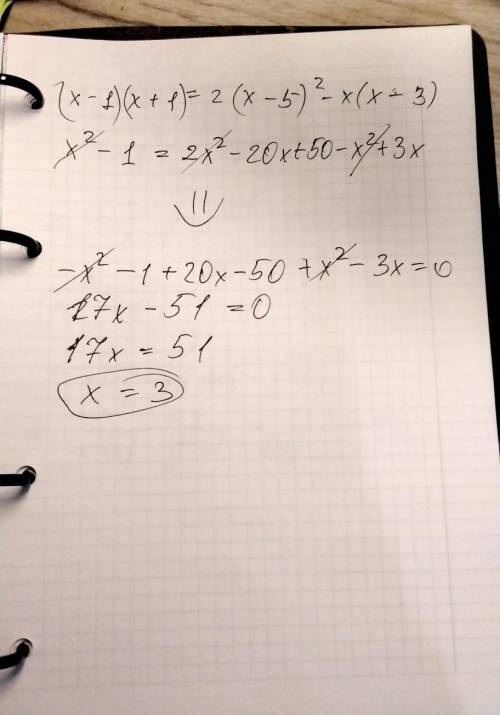 (x-1)(x+1)=2(x-5)²-x(x-3)
x²-1=2x²-20x+50-x²+3x
-x²-1+20x-50+x²-3x=0
17x-51=0
17x=51
x=3